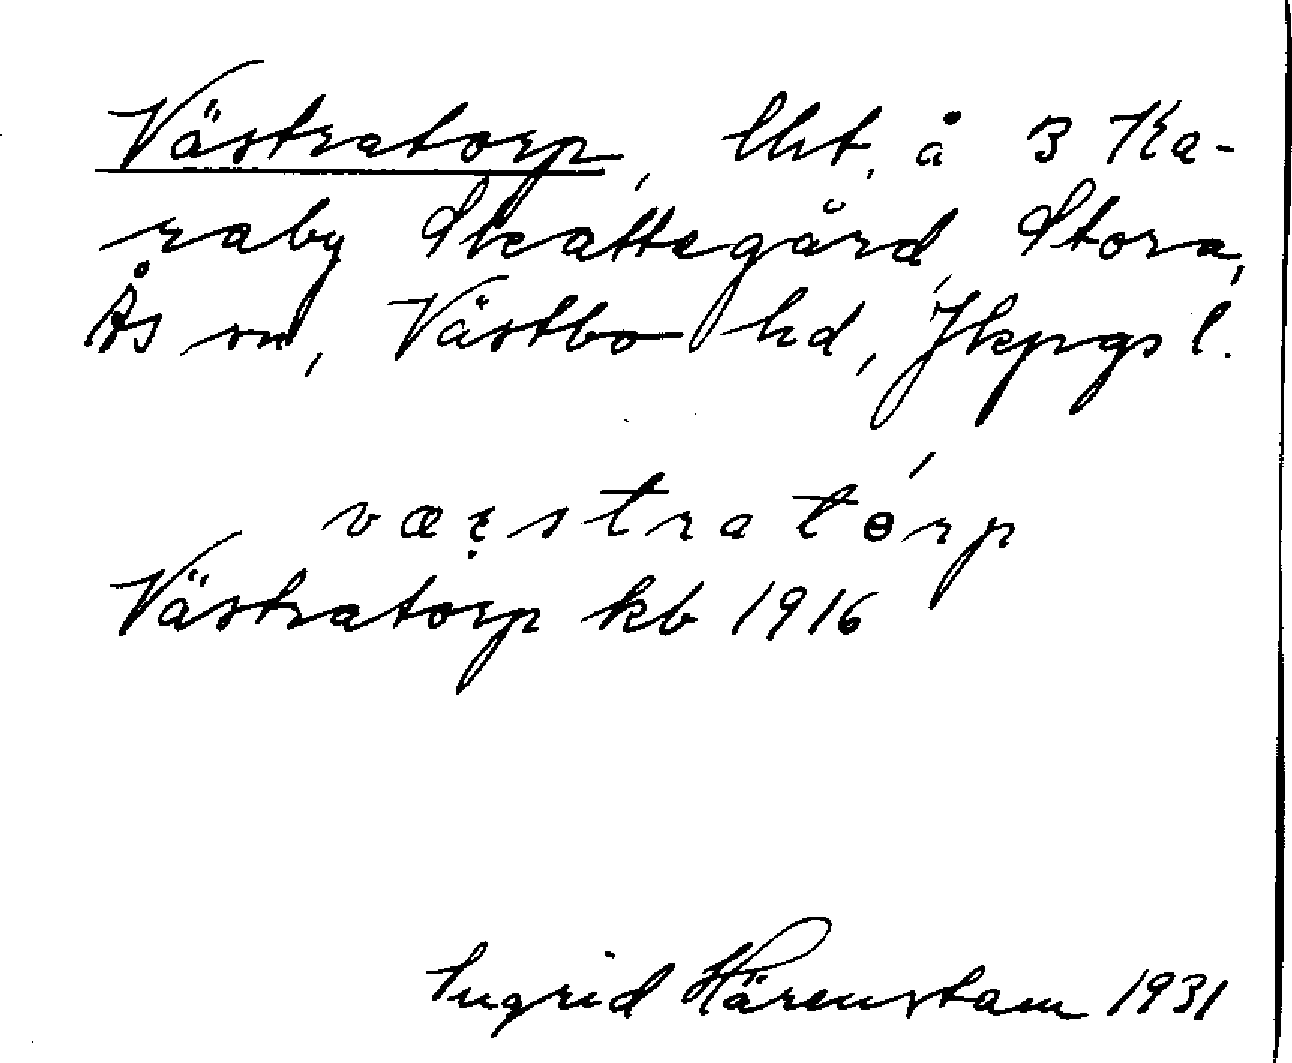 Västratorp, lht. å 3 Ka-
raby Skattegård, Stora,
Ås sn, Västbo hd, Jkpgs l.
Västratorp kb 1916
Ingrid Härenstam 1931